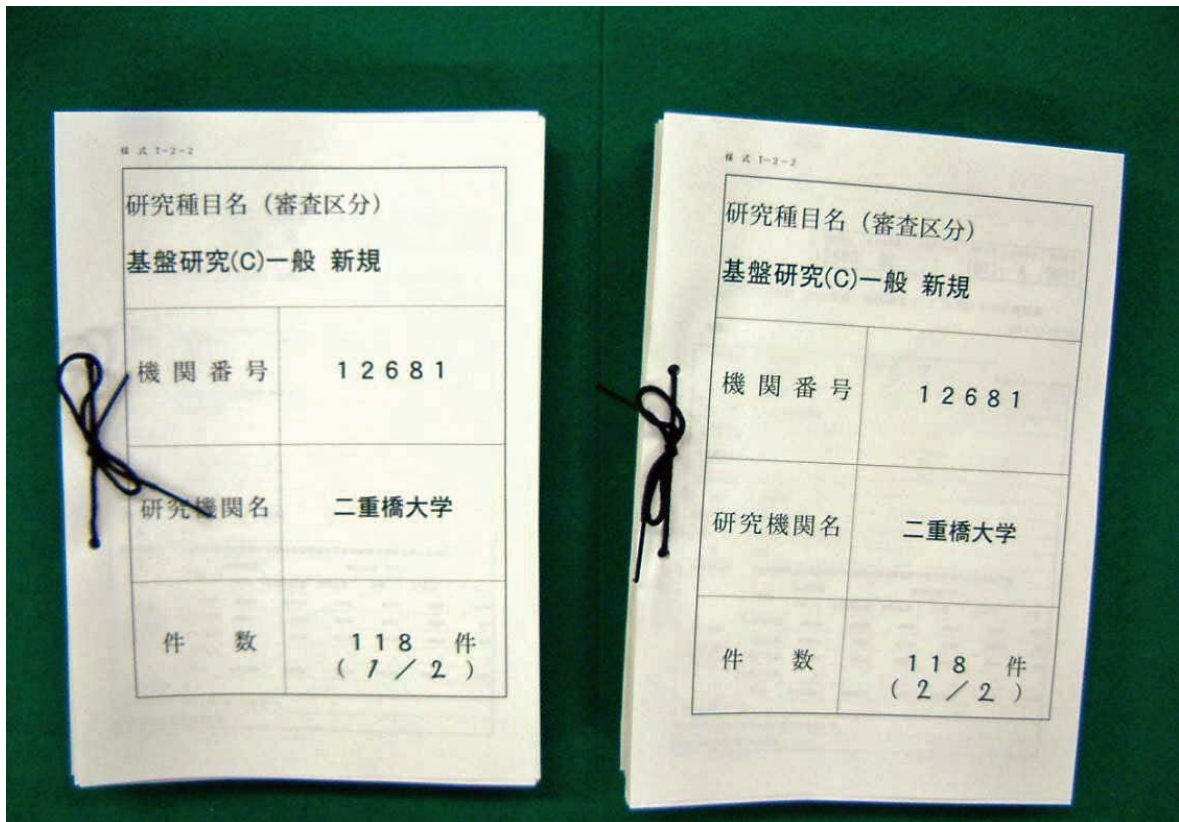 様式 T-2-2
研究種目名(審査区分)
基盤研究(C)一般 新規
機関番号 12681
研究機関名 二重橋大学
件数 118 件
(1/2)
様式 T-2-2
研究種目名(審査区分)
基盤研究(C)一般 新規
機関番号 12681
研究機関名 二重橋大学
件数 118 件
(2/2)